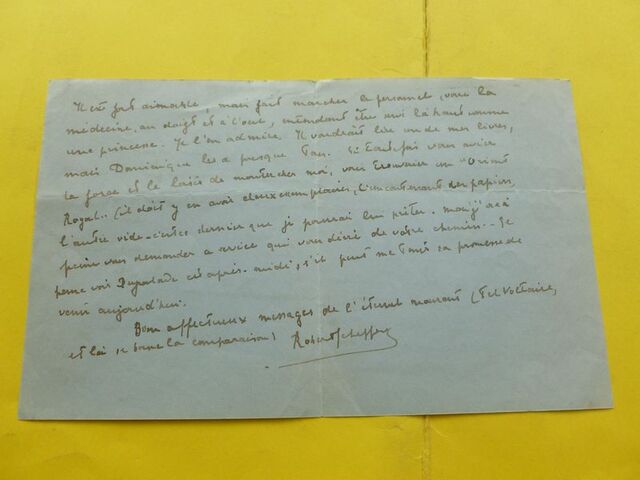 Il est fort aimable, mais fait marcher le personnel, voire la
médecine, au doigt et à l'oeil, entendant être servi là haut comme
une princesse. Je l'en admire. Il voudrait lire un de mes livres,
mais Dominique les a presque tous. Si toutefois vous aviez
la force et le loisir de monter chez moi, vous trouveriez un "Prince
Royal.. (il doit y en avoir deux exemplaires, l'un contenant des papiers,
l'autre vide - c'est ce dernier que je pourrai lui prêter. mais j'ose à
peine vous demander ce service qui vous dévie de votre chemin.. Je
pense voir cet après-midi, s'il peut me tenir sa promesse de
venir aujourd'hui.
Bons affectueux messages de l'éternel mourant (tel Voltaire,
et là se borne la comparaison)
Robert Scheffer